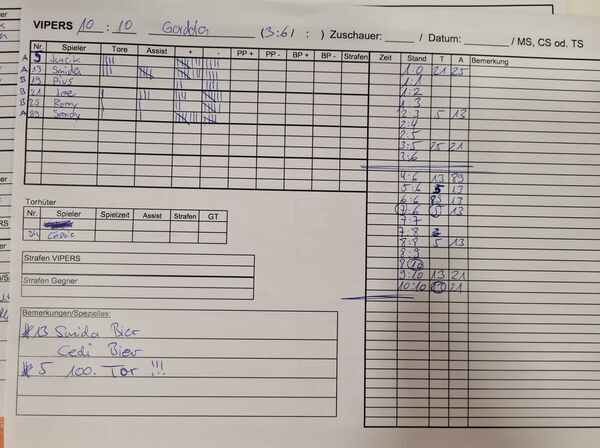 VIPERS 10 : 10 (3:6/ : ) Zuschauer: / Datum: / MS, CS od. TS
Nr. Spieler Tore Assist + - PP + PP - BP + BP - Strafen Zeit Stand T A Bemerkung
A 5
A 13 Smida
B 19 Pius
B 21
B 25 Romy
A 89 Sandy
1:0 21 25
1:1
1:2
1:3
2:3 5 13
2:4
2:5
3:5 25 21
3:6
4:6 13 89
5:6 5 13
6:6 13
7:6 5 13
7:7
7:8
8:8 5 13
8:9
8:10
9:10 13 21
10:10 13 21
Torhüter
Nr. Spieler Spielzeit Assist Strafen GT
Cédric
Strafen VIPERS
Strafen Gegner
Bemerkungen/Spezielles:
#13 Smida Bier
Cedi Bier
#5 100. Tor !!!